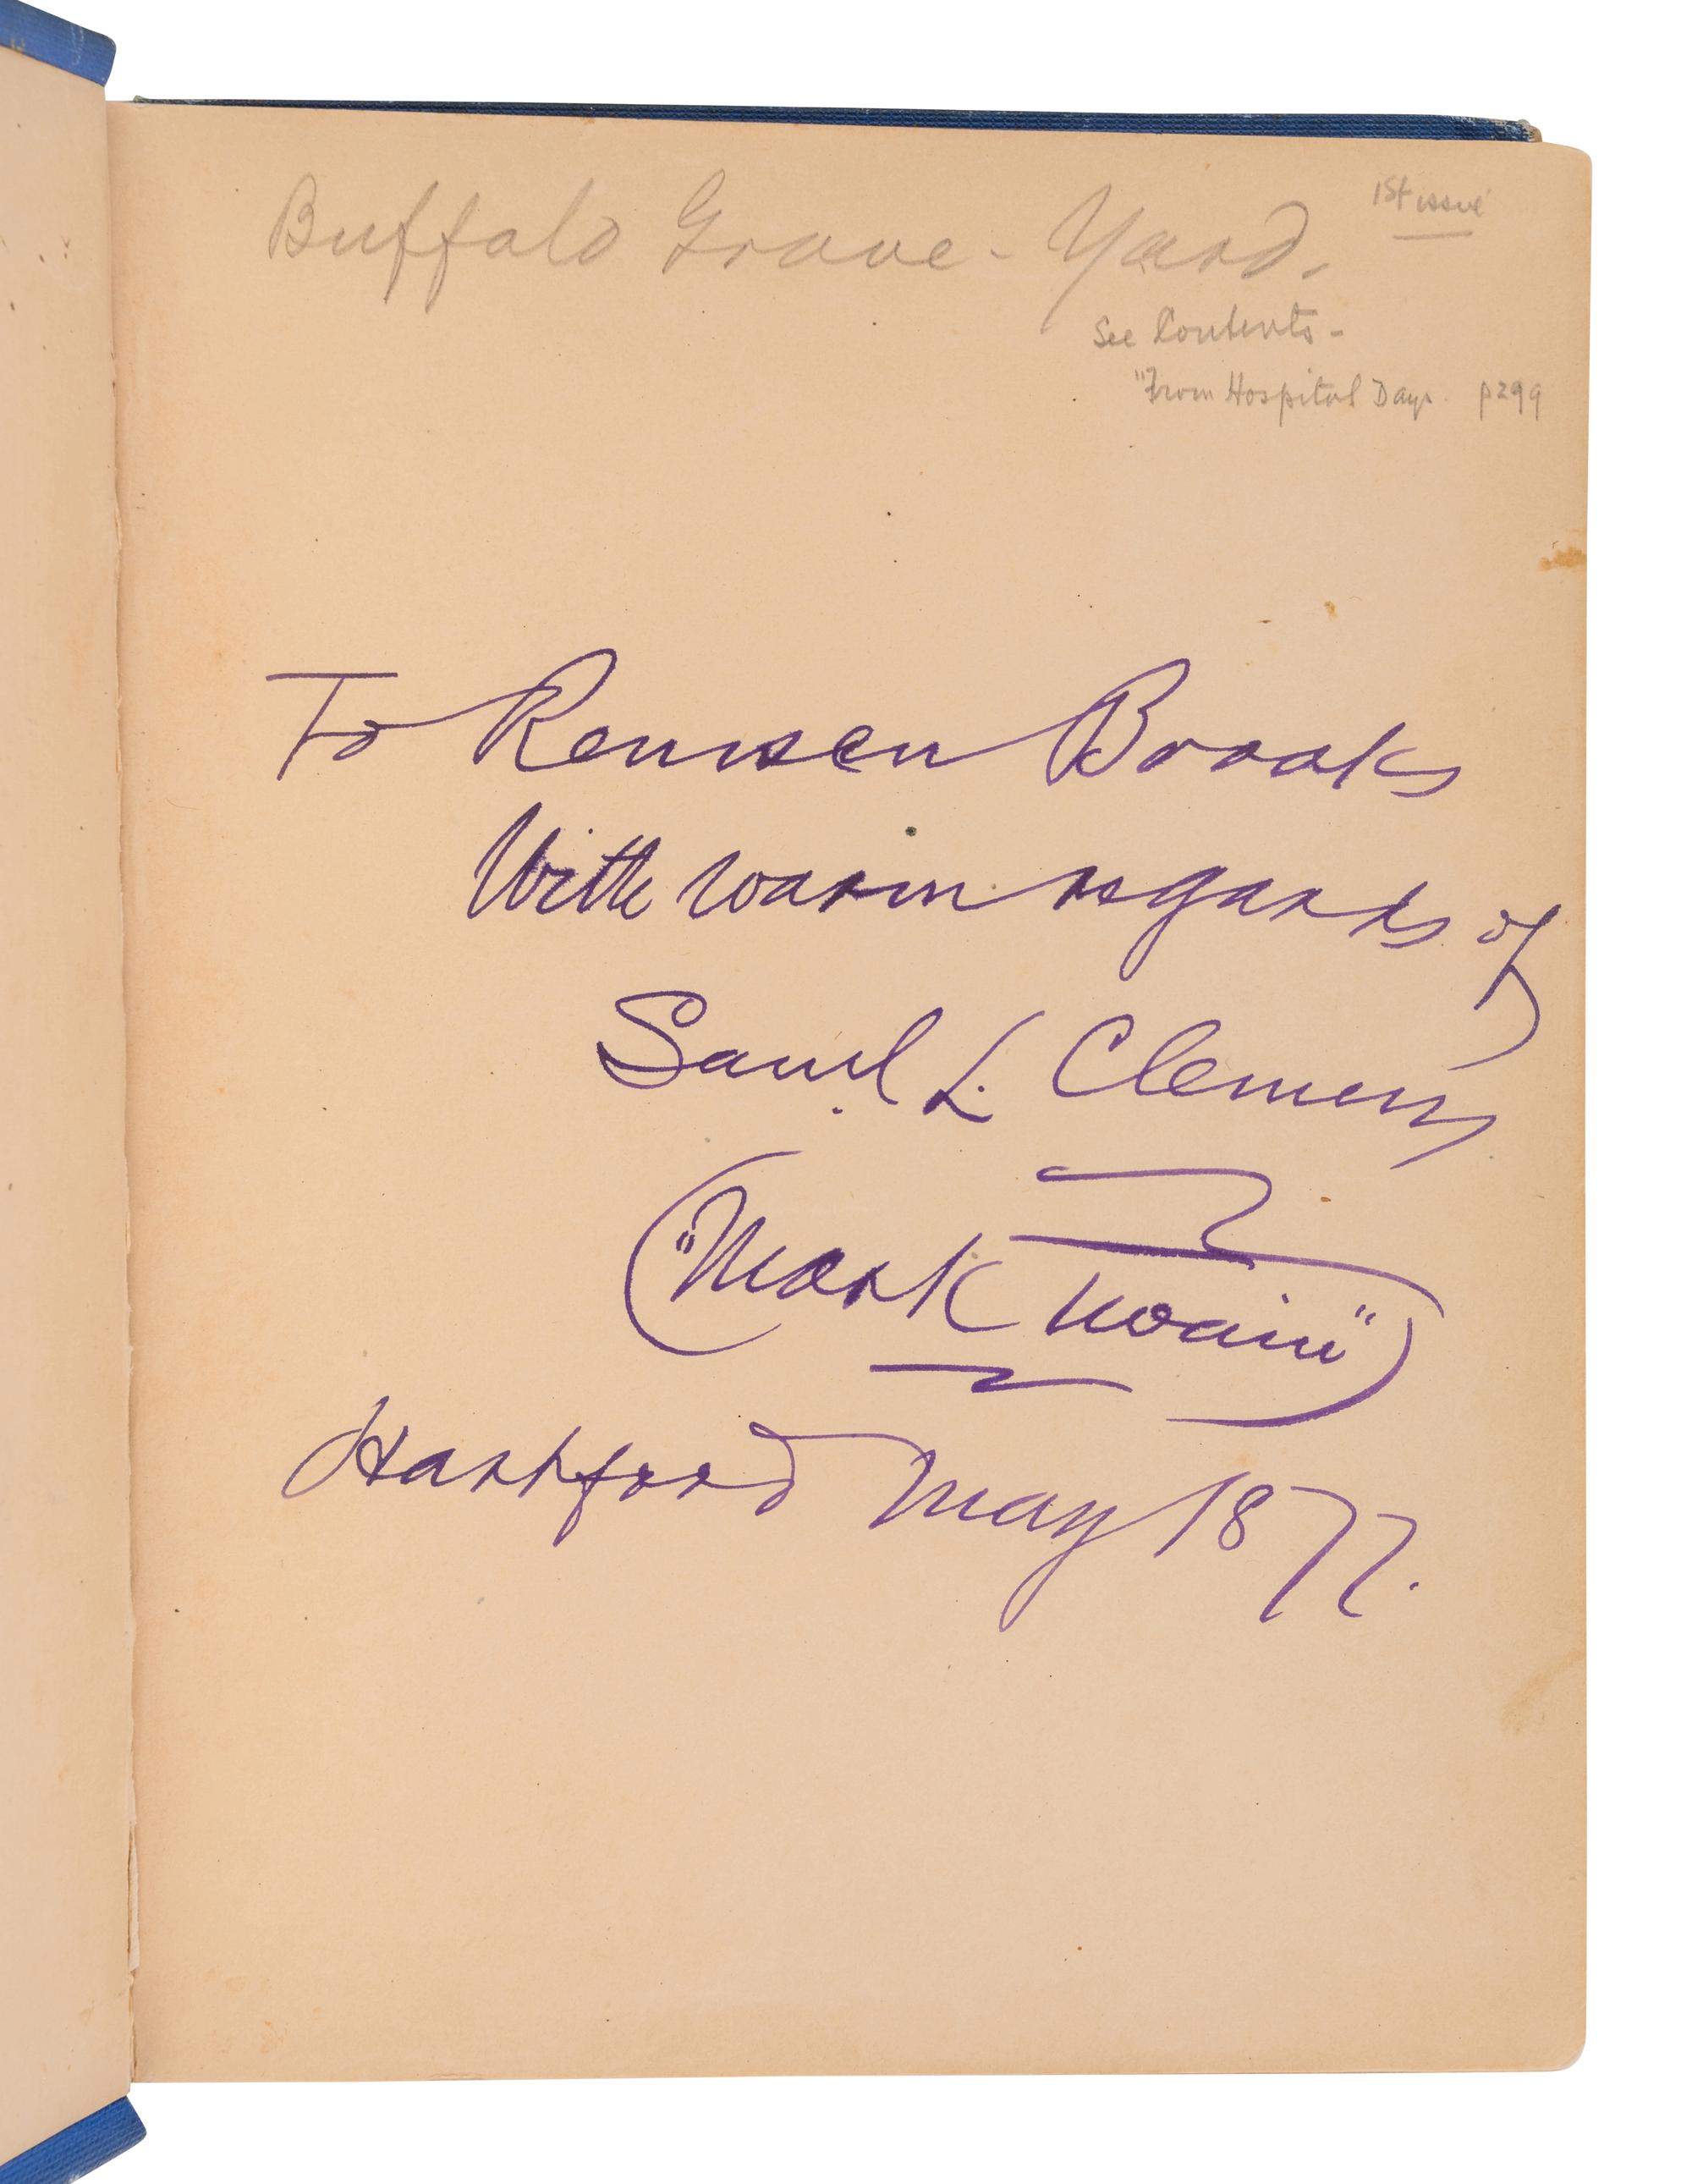 1st issue
Buffalo Grave-Yard.
See Contents -
"From Hospital Days. p299
To Remsen Brooks
With warm regards of
Saml L. Clemens
("Mark Twain")
Hartford May 1877.